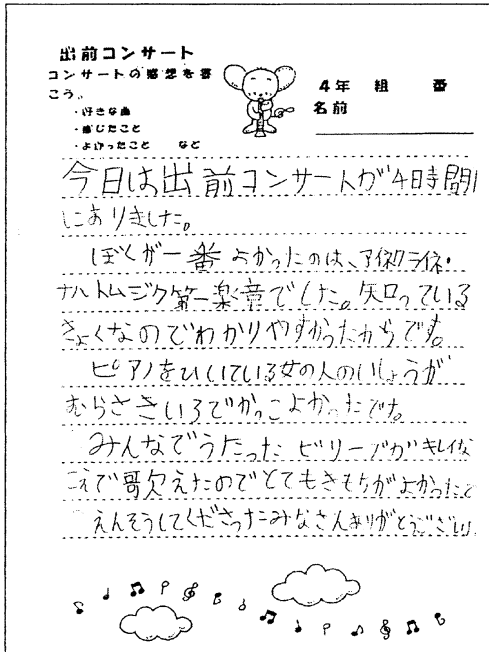 出前コンサート
コンサートの感想を書
こう。
・好きな曲
・感じたこと
・よかったこと など
4年 組 番
名前
今日は出前コンサートが4時間目
にありました。
ぼくが一番よかったのは、アイネクライネ・
ナハトムジク第一楽章でした。知っている
きょくなのでわかりやすかったからです。
ピアノをひいている女の人のいしょうが
むらさきいろでかっこよかったです。
みんなでうたった ビリーブが キレイな
こえで歌えたのでとてもきもちがよかったで
えんそうしてくださったみなさんありがとうござい